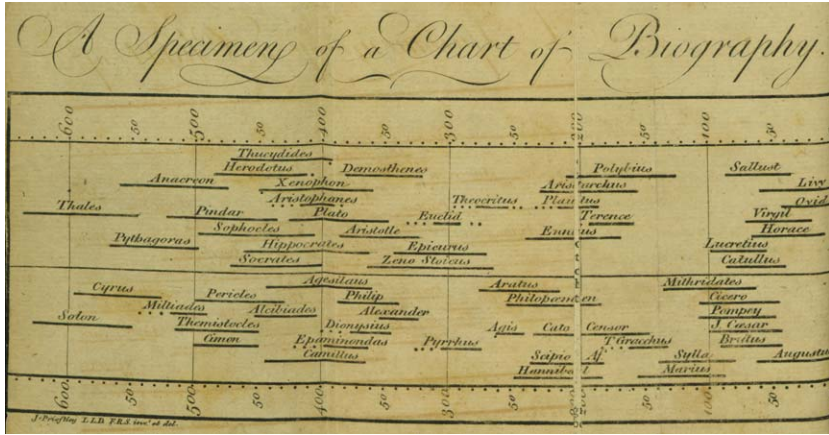 A Specimen of a Chart of Biography.
600 50 500 50 400 50 300 50 200 50 100 50
Thucydides
Herodotus Demosthenes Polybius Sallust
Anacreon Xenophon Aristarchus Livy
Thales Aristophanes Theocritus Plautus Ovid
Pindar Plato Euclid Terence Virgil
Sophocles Aristotle Ennius Horace
Pythagoras Hippocrates Epicurus Lucretius
Socrates Zeno Stoicus Catullus
Agesilaus Aratus Mithridates
Cyrus Pericles Philip Philopœmen Cicero
Miltiades Alcibiades Alexander Pompey
Solon Themistocles Dionysius Agis Cato Censor J. Cæsar
Cimon Epaminondas Pyrrhus T Gracchus Brutus
Camillus Scipio Af. Sylla Augustus
Hannibal Marius
600 50 500 50 400 50 300 50 200 50 100 50
J. Priestley L.L.D. F.R.S. inv.t et del.